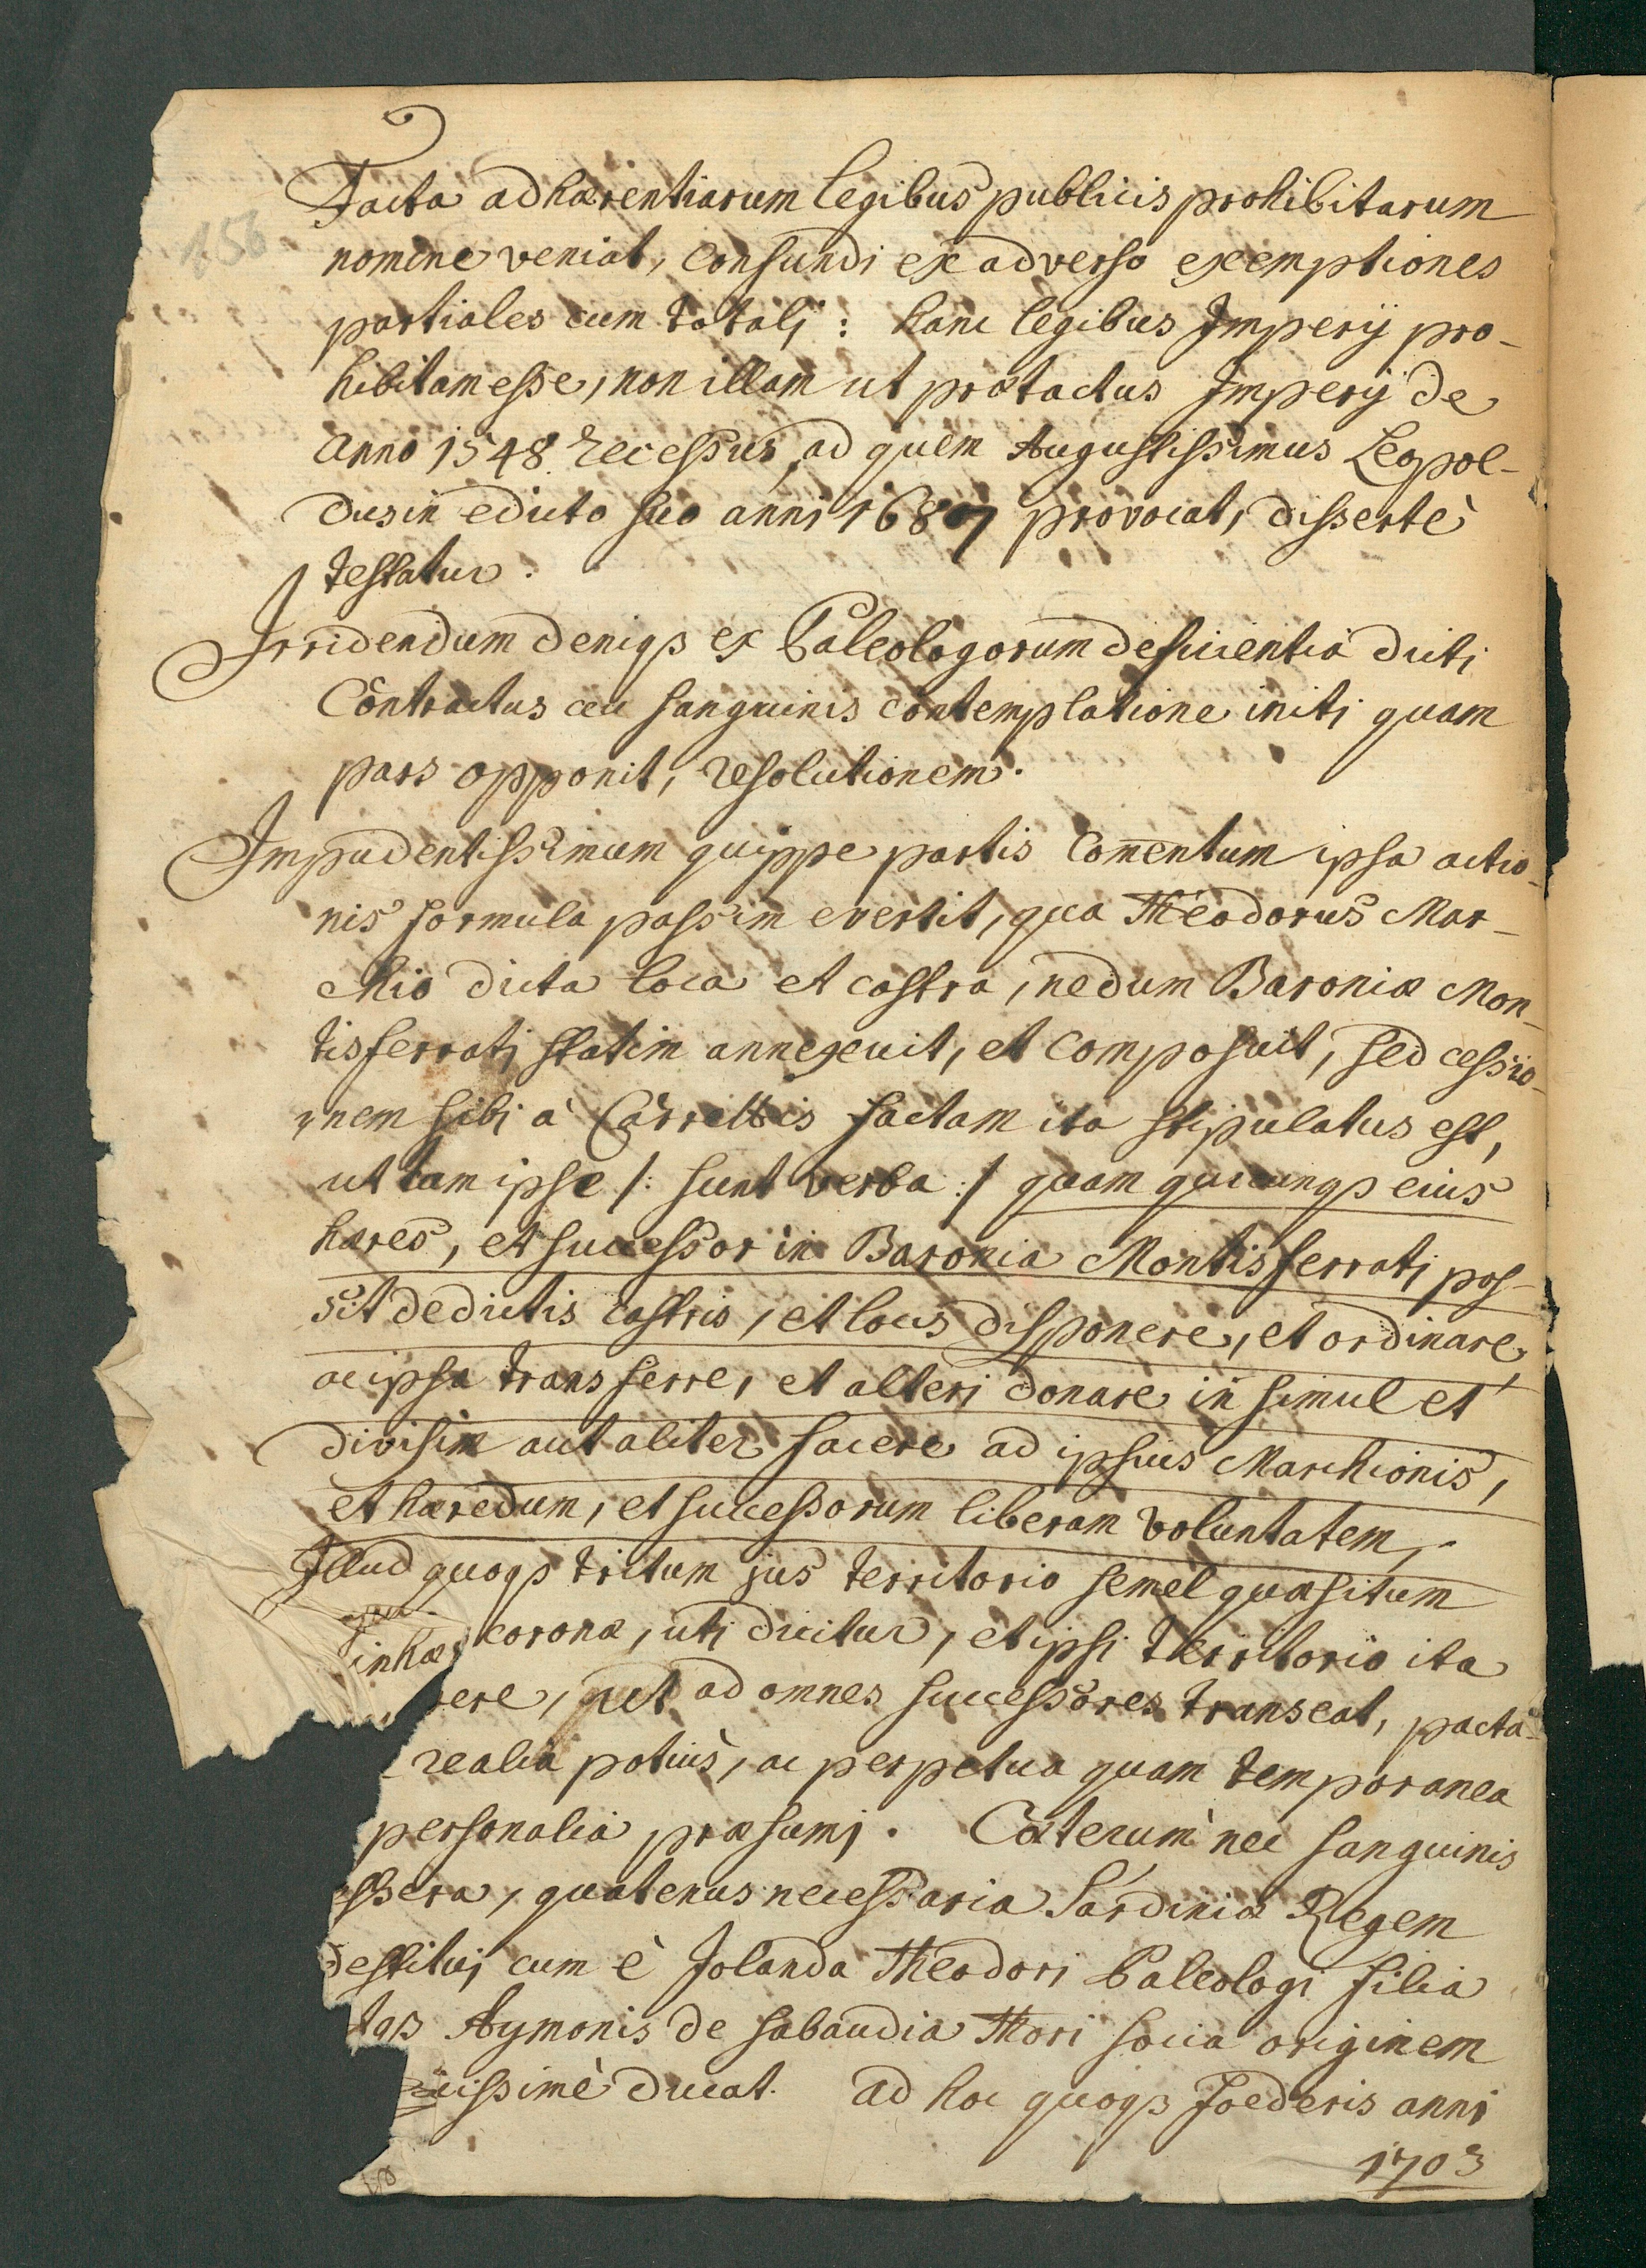 156
Facta adhærentiarum legibus publicis prohibitarum
nomine veniat, confundi ex adverso exemptiones
partiales cum totali: hanc legibus Imperij pro-
hibitam esse, non illam ut prætactus Imperij de
anno 1548 recessus, ad quem Augustissimus Leopol-
dus in edicto suo anni 1687 provocat, dissertè
testatur.
Irridendum deniqȝ ex Paleologorum deficientia dicti
Contractus ceu sanguinis contemplatione initi quam
pars opponit, resolutionem.
Impudentissimum quippe partis Com̄entum ipsa actio-
nis formula passim evertit, qua Theodorus Mar-
chio dicta loca et castra, nedum Baroniæ Mon-
tisferrati statim annexuit, et composuit, sed cessio-
nem sibi à Carrettis factam ita stipulatus est,
ut tam ipse /: sunt verba :/ quam quicunqȝ eius
hæres, et successor in Baronia Montisferrati pos-
sit de dictis castris, et locis disponere, et ordinare,
ac ipsa transferre, et alteri donare in simul et
divisim aut aliter facere ad ipsius Marchionis,
et hæredum, et successorum liberam voluntatem,
Illud quoqȝ tritum jus territorio semel quæsitum
seu coronæ, uti dicitur, et ipsi territorio ita
inhæ
rere, ut ad omnes successores transeat, pacta
realia potiùs, ac perpetua quam temporanea
personalia præsumi. Cæterum nec sanguinis
ssera, quatenus necessaria Sardiniæ Regem
destitui cum è Jolanda Theodori Paleologi filia
tqȝ Aymonis de Sabaudia Thori socia originem
cissimè ducat. ad hoc quoqȝ Foederis anni
1703